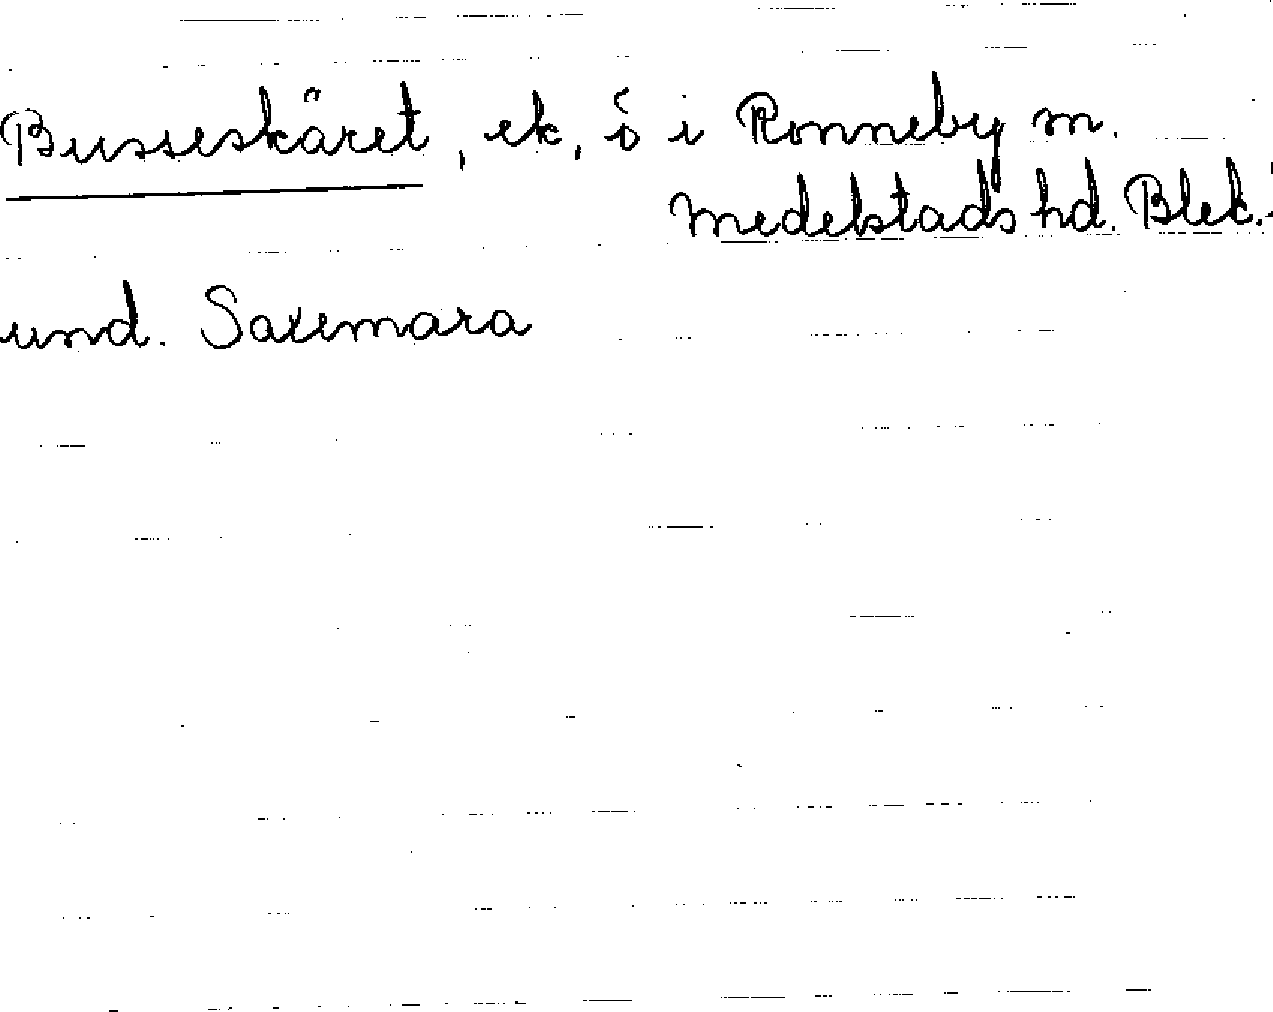 Busseskäret, ek, ö i Ronneby sn.
Medelstads hd. Blek.
und. Saxemara